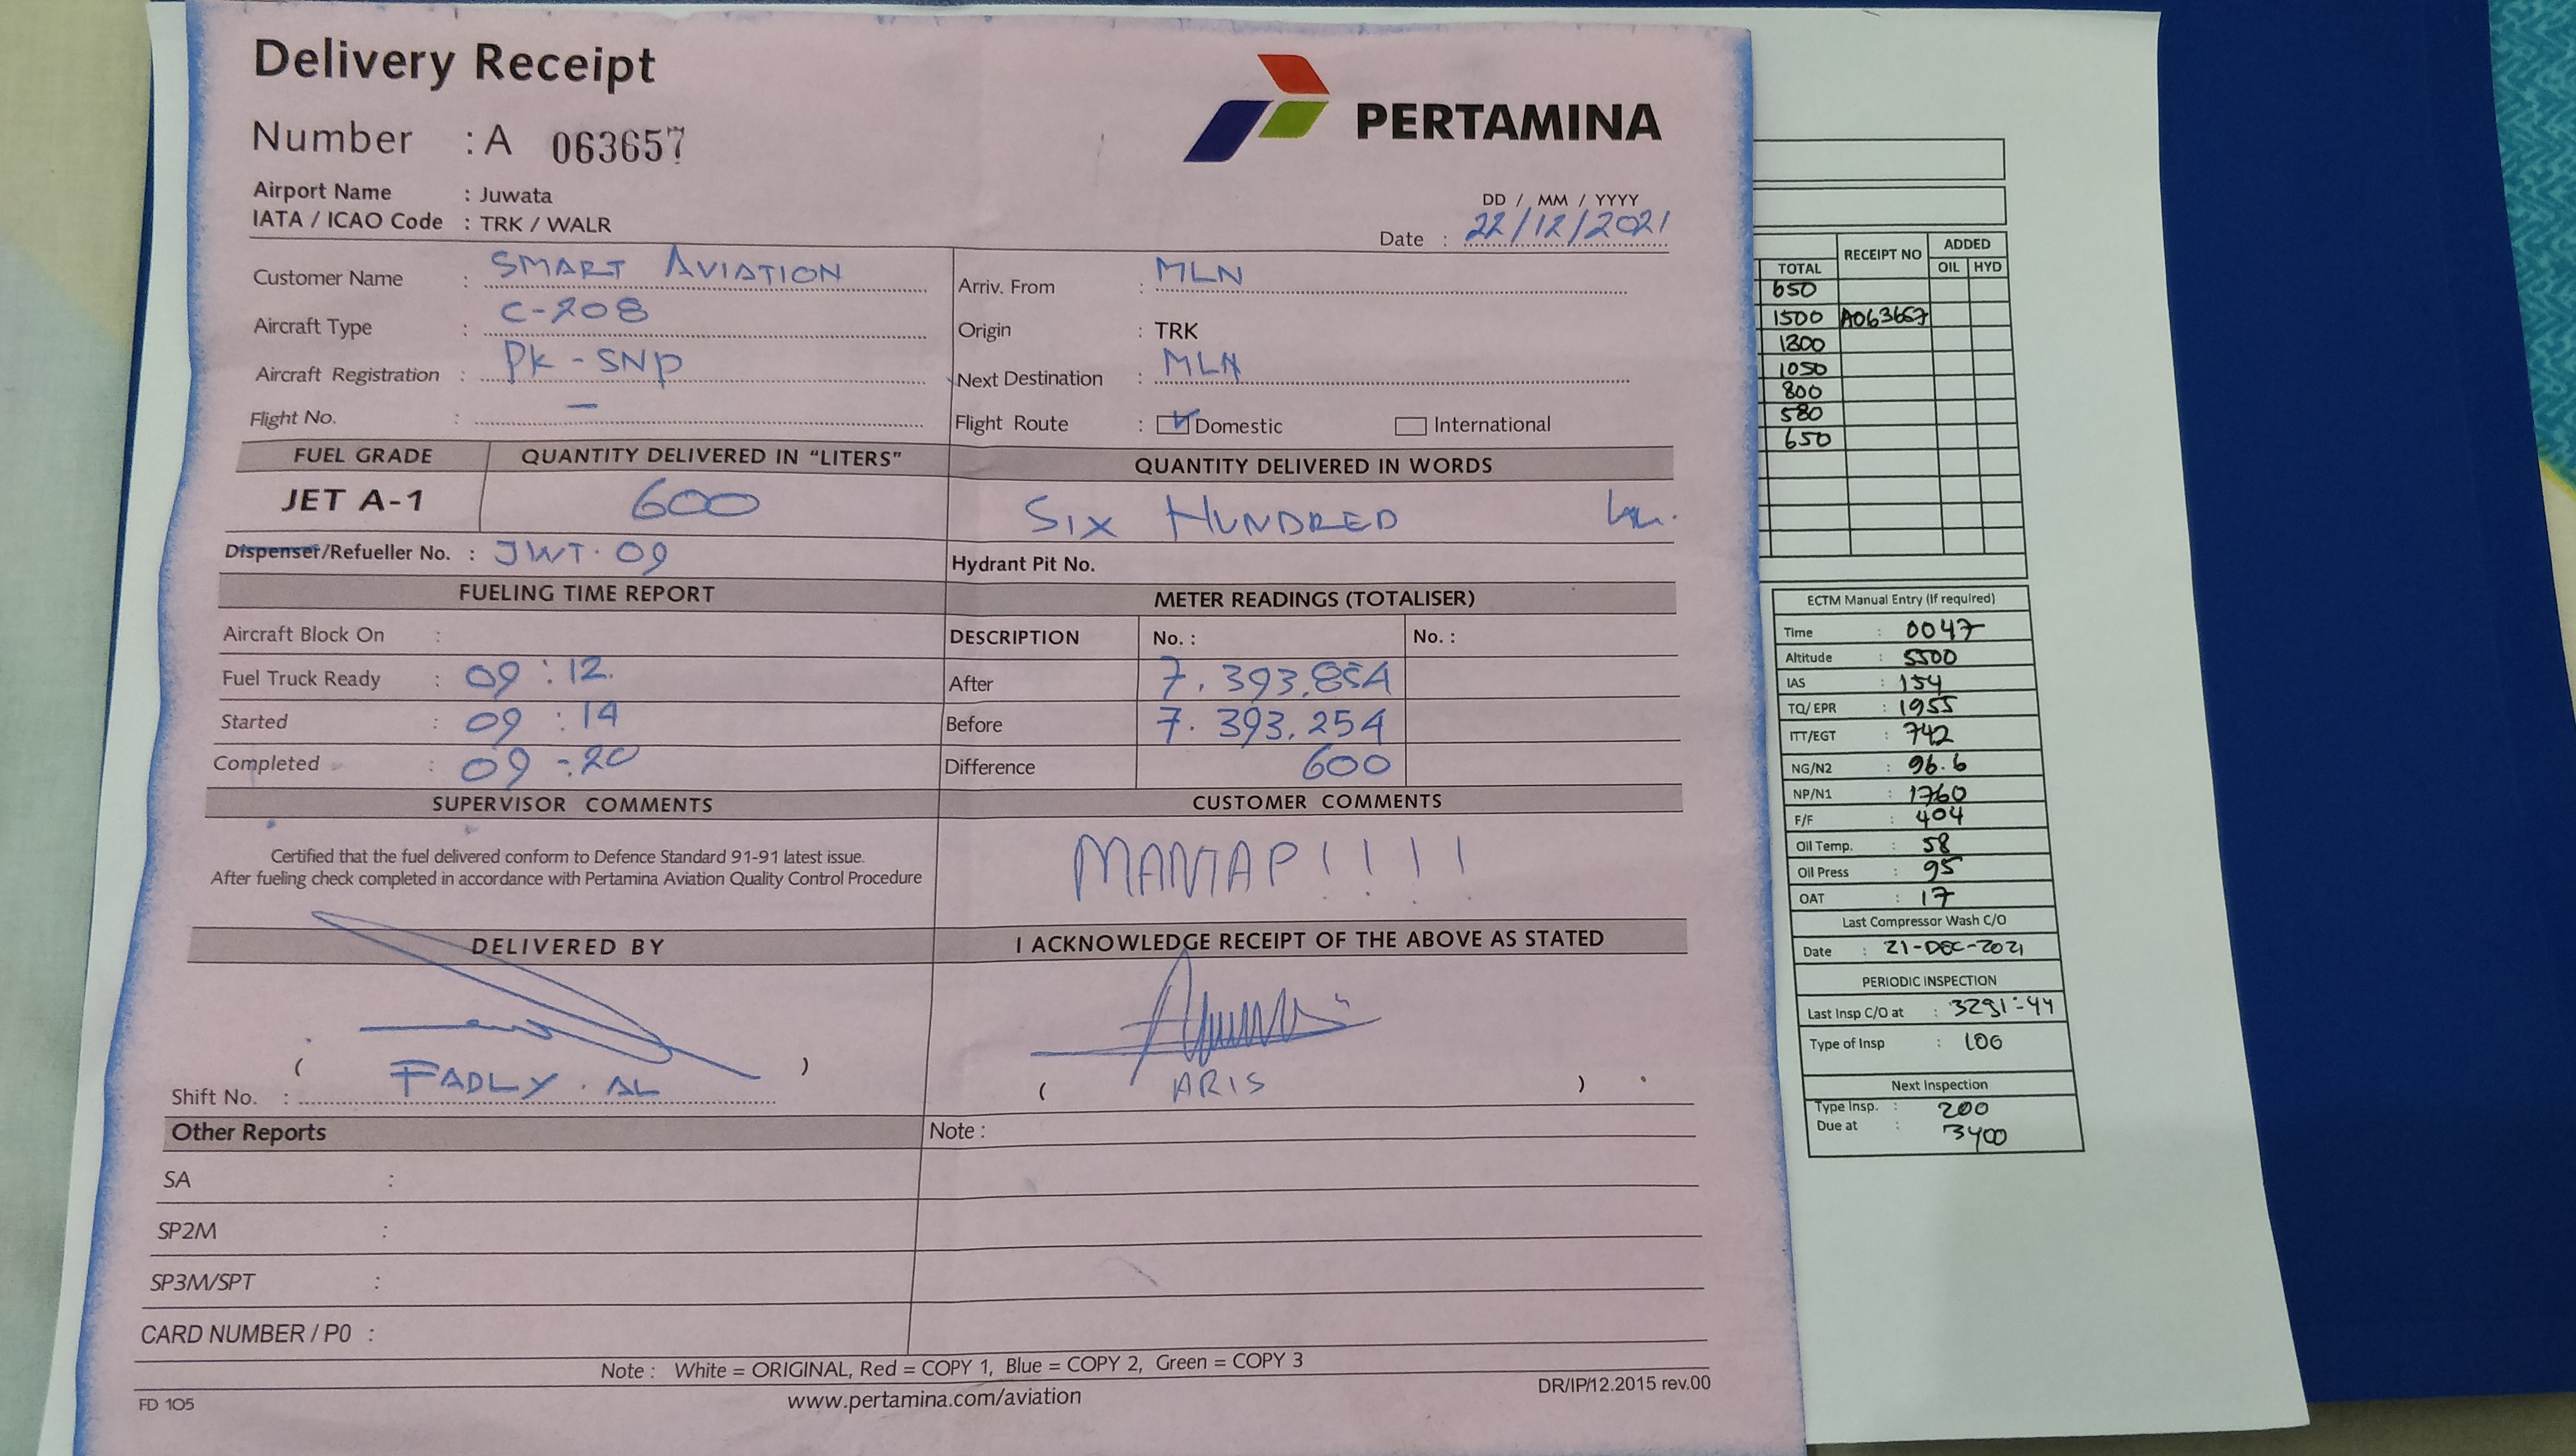 Delivery Receipt
Number : A 063657
PERTAMINA
Airport Name : Juwata
IATA / ICAO Code : TRK / WALR
DD / MM / YYYY
Date : 22/12/2021
Customer Name : SMART AVIATION
Aircraft Type : C-208
Aircraft Registration : PK-SNP
Flight No. : –
Arriv. From : MLN
Origin : TRK
Next Destination : MLN
Flight Route : Domestic International
FUEL GRADE QUANTITY DELIVERED IN "LITERS" QUANTITY DELIVERED IN WORDS
JET A-1 600 SIX HUNDRED
Dispenser/Refueller No. : JWT.09 Hydrant Pit No.
FUELING TIME REPORT METER READINGS (TOTALISER)
Aircraft Block On : DESCRIPTION No. : No. :
Fuel Truck Ready : 09 : 12. After 7.393.854
Started : 09 : 14 Before 7.393.254
Completed : 09 : 20 Difference 600
SUPERVISOR COMMENTS CUSTOMER COMMENTS
Certified that the fuel delivered conform to Defence Standard 91-91 latest issue.
After fueling check completed in accordance with Pertamina Aviation Quality Control Procedure
MANTAP!!!!
DELIVERED BY I ACKNOWLEDGE RECEIPT OF THE ABOVE AS STATED
( ) ( ARIS )
Shift No. : FADLY . AL
Other Reports Note :
SA :
SP2M :
SP3M/SPT :
CARD NUMBER / P0 :
Note : White = ORIGINAL, Red = COPY 1, Blue = COPY 2, Green = COPY 3
FD 105 www.pertamina.com/aviation DR/IP/12.2015 rev.00
TOTAL RECEIPT NO ADDED
OIL HYD
650
1500 A063657
1300
1050
800
580
650
ECTM Manual Entry (If required)
Time : 0047
Altitude : 5500
IAS : 154
TQ/ EPR : 1955
ITT/EGT : 742
NG/N2 : 96.6
NP/N1 : 1760
F/F : 404
Oil Temp. : 58
Oil Press : 95
OAT : 17
Last Compressor Wash C/O
Date : 21-DEC-2021
PERIODIC INSPECTION
Last Insp C/O at : 3291:44
Type of Insp : 100
Next Inspection
Type Insp. : 200
Due at : 3400